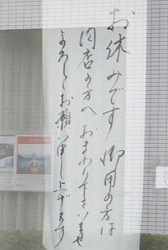 お休みです 御用の方は
肉店の方へおまわり下さいませ
よろしくお願い申し上げます